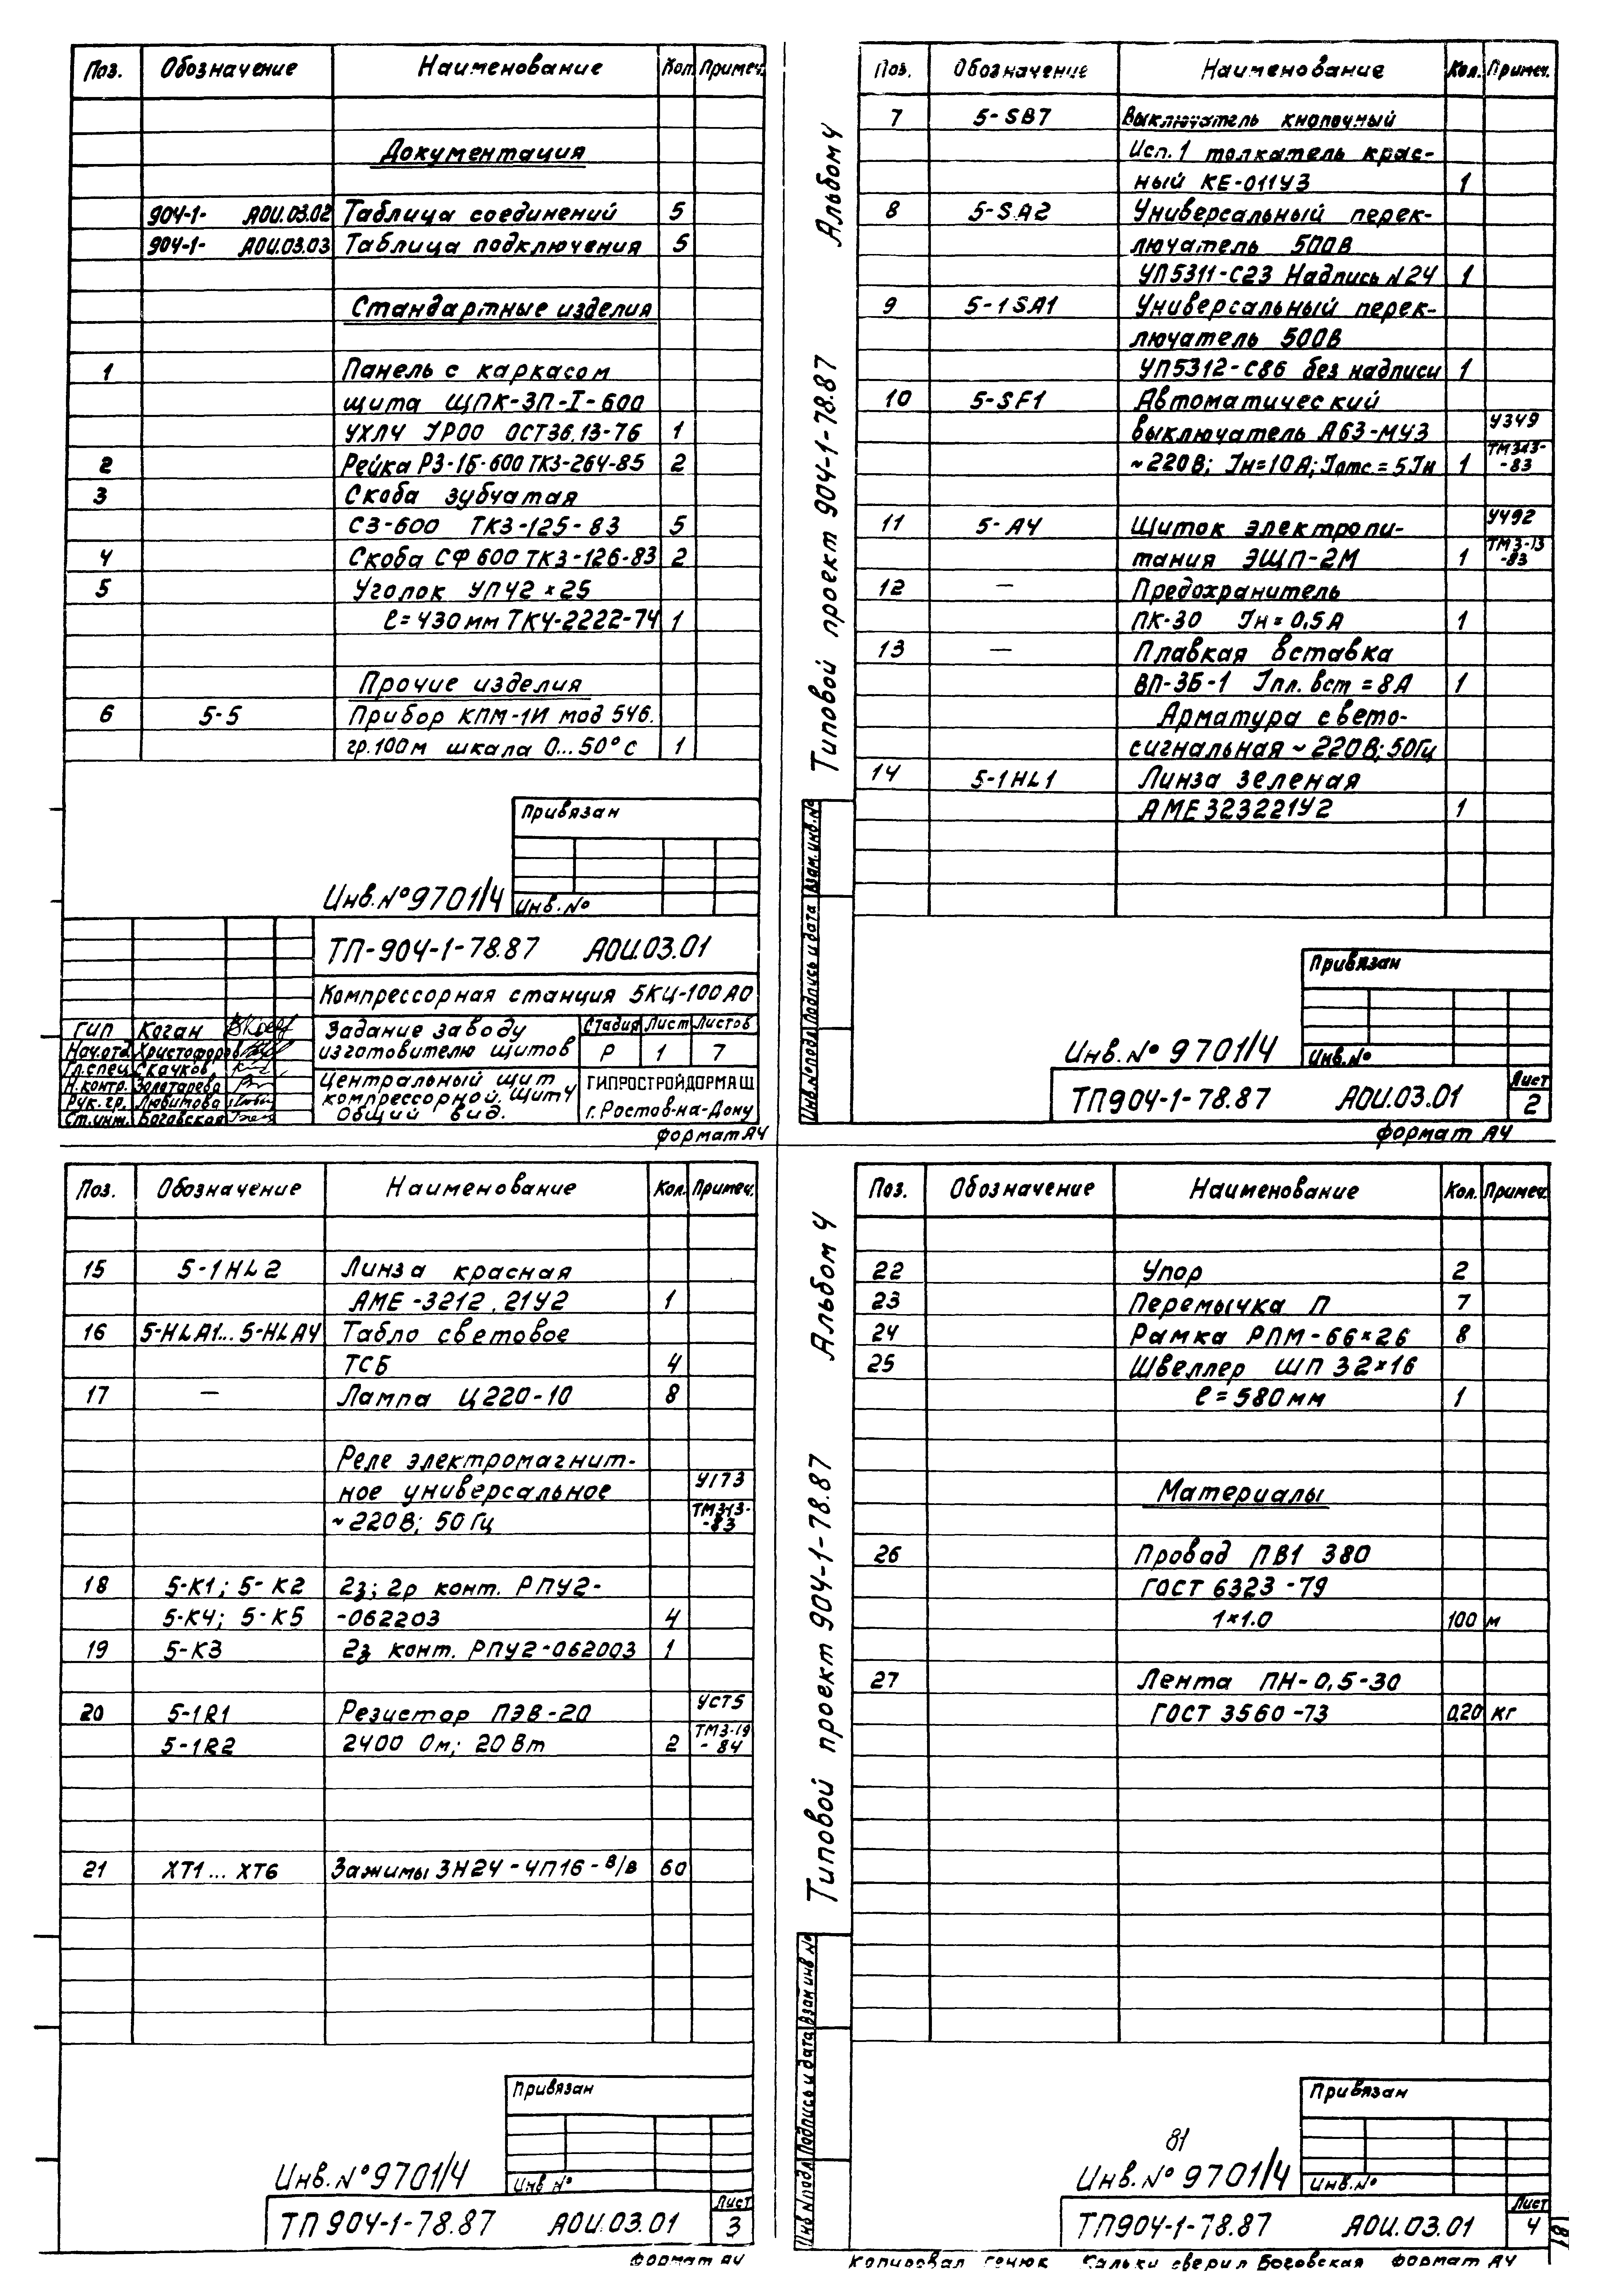 Поз. Обозначение Наименование Кол. Примеч.
Документация
904-1- АОИ.03.02 Таблица соединений 5
904-1- АОИ.03.03 Таблица подключения 5
Стандартные изделия
1 Панель с каркасом
щита ЩПК-ЗП-I-600
УХЛ4 УР00 ОСТ36.13-76 1
2 Рейка РЗ-16-600 ТКЗ-264-85 2
3 Скоба зубчатая
СЗ-600 ТКЗ-125-83 5
4 Скоба СФ 600 ТКЗ-126-83 2
5 Уголок УП42×25
ℓ=430мм ТК4-2222-74 1
Прочие изделия
6 5-5 Прибор КПМ-1И мод 546.
гр.100м шкала 0...50°С 1
Привязан
Инв.№9701/4 Инв.№
ТП-904-1-78.87 АОИ.03.01
Компрессорная станция 5КЦ-100А0
ГИП Коган Задание заводу Стадия Лист Листов
Нач.отд. Христофоров изготовителю щитов Р 1 7
Гл.спец. Скачков
Н.контр. Золотарева Центральный щит ГИПРОСТРОЙДОРМАШ
Рук.гр. Любимова компрессорной. Щит4
Ст.инж. Боговская Общий вид. г.Ростов-на-Дону
формат А4
Альбом 4
Типовой проект 904-1-78.87
Поз. Обозначение Наименование Кол. Примеч.
7 5-SB7 Выключатель кнопочный
Исп.1 толкатель крас-
ный КЕ-011У3 1
8 5-SA2 Универсальный перек-
лючатель 500В
УП5311-С23 Надпись №24 1
9 5-1SA1 Универсальный перек-
лючатель 500В
УП5312-С86 без надписи 1
10 5-SF1 Автоматический
выключатель А63-МУ3 У349
~220В; Iн=10А; Iотс.=5Iн 1 ТМ3-13-
-83
11 5-А4 Щиток электропи- У492
тания ЭЩП-2М 1 ТМ3-13
-83
12 — Предохранитель
ПК-30 Iн=0,5А 1
13 — Плавкая вставка
ВП-3Б-1 Iпл.вст=8А 1
Арматура свето-
сигнальная ~220В; 50Гц
14 5-1HL1 Линза зеленая
АМЕ323221У2 1
Привязан
Инв.№ 9701/4 Инв.№
Инв.№подл. Подпись и дата Взам.инв.№
ТП904-1-78.87 АОИ.03.01 Лист
2
формат А4
Поз. Обозначение Наименование Кол. Примеч.
15 5-1HL2 Линза красная
АМЕ-3212.21У2 1
16 5-HLA1...5-HLA4 Табло световое
ТСБ 4
17 — Лампа Ц220-10 8
Реле электромагнит-
ное универсальное У173
~220В; 50Гц ТМ3-13-
-83
18 5-К1; 5-К2 2з; 2р конт. РПУ2-
5-К4; 5-К5 -062203 4
19 5-К3 2з конт. РПУ2-062003 1
20 5-1R1 Резистор ПЭВ-20 УСТ5
5-1R2 2400 Ом; 20Вт 2 ТМ3-19
-84
21 ХТ1...ХТ6 Зажимы ЗН24-4П16-В/В 60
Привязан
Инв.№9701/4 Инв №
ТП904-1-78.87 АОИ.03.01 Лист
3
формат А4
Альбом 4
Типовой проект 904-1-78.87
Поз. Обозначение Наименование Кол. Примеч.
22 Упор 2
23 Перемычка П 7
24 Рамка РПМ-66×26 8
25 Швеллер ШП 32×16
ℓ=580мм 1
Материалы
26 Провод ПВ1 380
ГОСТ 6323-79
1×1.0 100 м
27 Лента ПН-0,5-30
ГОСТ 3560-73 0,20 кг
Привязан
81
Инв.№ 9701/4 Инв.№
Инв №подл Подпись и дата Взам инв №
ТП904-1-78.87 АОИ.03.01 Лист
4
81
Копировал Кальки сверил Боговская формат А4